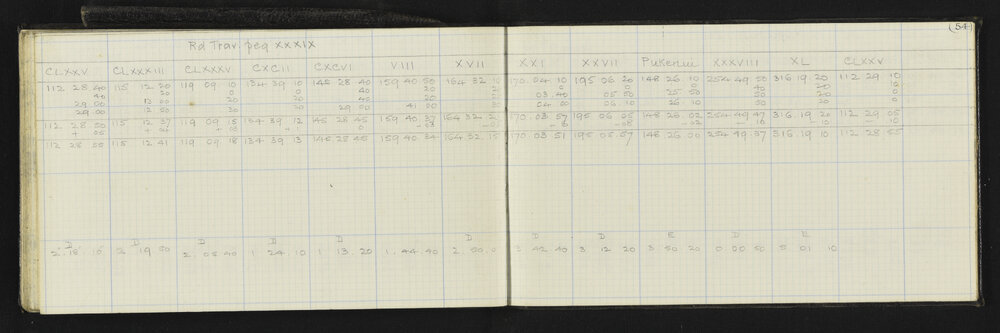 (54)
Rd Trav. peg XXXIX
CLXXV CLXXXIII CLXXXV CXCII CXCVI VIII XVII XXI XXVII Pukenui XXXVIII XL CLXXV
112 28 40 115 12 20 119 09 10 134 39 10 145 28 40 159 40 50 164 32 10 170 04 10 195 06 20 148 26 10 254 49 50 316 19 20 112 29 10
40 20 0 0 40 20 0 0 50 40 20
29 00 13 00 20 20 20 03 40 05 50 25 50 50 20 0
29 00 12 50 30 20 29 00 41 00 04 00 06 10 26 10 50 20 0
112 28 50 115 12 37 119 09 15 134 39 12 145 28 45 159 40 37 164 32 170 03 57 195 06 05 148 26 02 254 49 47 316 19 20 112 29 05
+ 05 0 - 10 - 10
112 28 55 115 12 41 119 09 18 134 39 13 145 28 45 159 40 34 164 32 15 170 03 51 195 05 57 148 26 00 254 49 37 316 19 10 112 28 55
D D D D D D D D E D E
2° 18' 10" 2 19 50 2 05 40 1 24 10 1 13 20 1. 44. 40 2 50 0 3 42 40 3 12 20 3 50 20 0 00 50 5 01 10